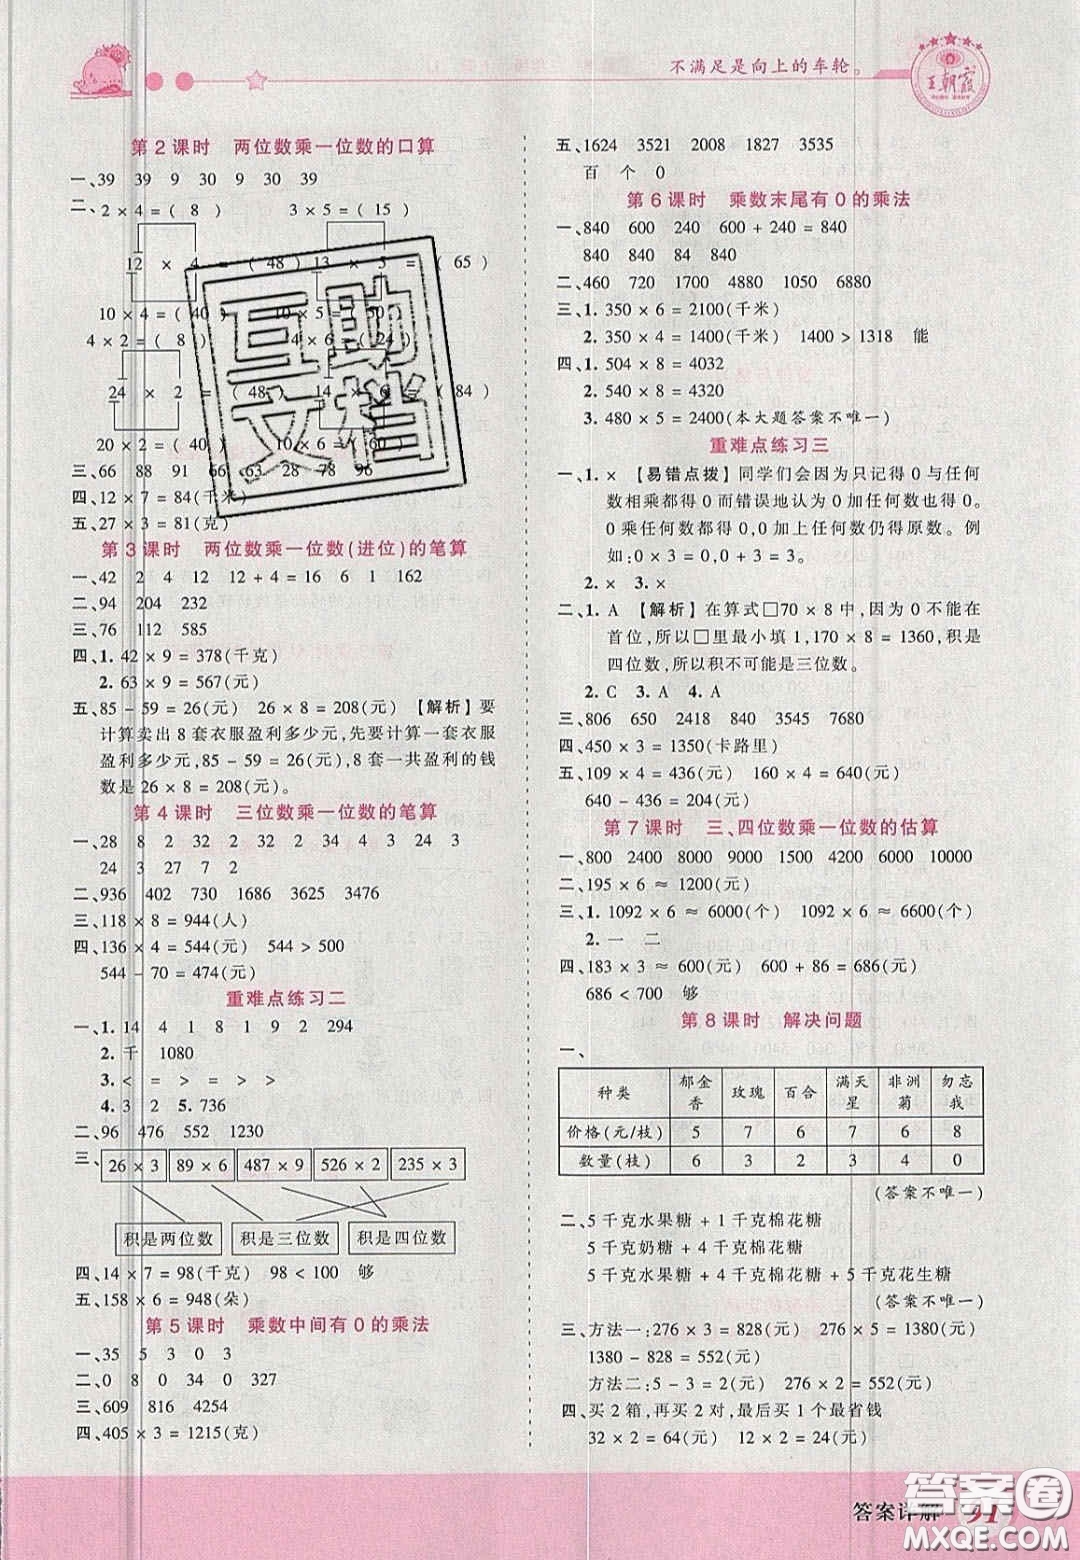 不满足是向上的车轮。
王朝霞
第2课时 两位数乘一位数的口算
一、39 39 9 30 9 30 39
二、2 × 4 = ( 8 ) 3 × 5 = ( 15 )
12 × 4 = ( 48 ) 13 × 5 = ( 65 )
10 × 4 = ( 40 ) 10 × 5 = ( 50 )
4 × 2 = ( 8 ) 4 × 6 = ( 24 )
24 × 2 = ( 48 ) 14 × 6 = ( 84 )
20 × 2 = ( 40 ) 10 × 6 = ( 60 )
三、66 88 91 66 63 28 78 96
四、12 × 7 = 84(千米)
五、27 × 3 = 81(克)
第3课时 两位数乘一位数(进位)的笔算
一、42 2 4 12 12 + 4 = 16 6 1 162
二、94 204 232
三、76 112 585
四、1. 42 × 9 = 378(千克)
2. 63 × 9 = 567(元)
五、85 - 59 = 26(元) 26 × 8 = 208(元) 【解析】要
计算卖出8套衣服盈利多少元,先要计算一套衣服
盈利多少元,85 - 59 = 26(元),8套一共盈利的钱
数是26 × 8 = 208(元)。
第4课时 三位数乘一位数的笔算
一、28 8 2 32 2 2 32 4 3 24 3
24 3 27 7 2
二、936 402 730 1686 3625 3476
三、118 × 8 = 944(人)
四、136 × 4 = 544(元) 544 > 500
544 - 70 = 474(元)
重难点练习二
一、1. 14 4 1 8 1 9 2 294
2. 千 1080
3. < = > = > >
4. 3 2 5. 736
二、96 476 552 1230
三、26 × 3 89 × 6 487 × 9 526 × 2 235 × 3
积是两位数 积是三位数 积是四位数
四、14 × 7 = 98(千克) 98 < 100 够
五、158 × 6 = 948(朵)
第5课时 乘数中间有0的乘法
一、35 5 3 0 3
二、0 8 0 34 0 327
三、609 816 4254
四、405 × 3 = 1215(克)
五、1624 3521 2008 1827 3535
百 个 0
第6课时 乘数末尾有0的乘法
一、840 600 240 600 + 240 = 840
840 840 84 840
二、460 720 1700 4880 1050 6880
三、1. 350 × 6 = 2100(千米)
2. 350 × 4 = 1400(千米) 1400 > 1318 能
四、1. 504 × 8 = 4032
2. 540 × 8 = 4320
3. 480 × 5 = 2400(本大题答案不唯一)
重难点练习三
一、1. × 【易错点拨】同学们会因为只记得0与任何
数相乘都得0而错误地认为0加任何数也得0。
0乘任何数都得0,0加上任何数仍得原数。例
如:0 × 3 = 0,0 + 3 = 3。
2. × 3. ×
二、1. A 【解析】在算式□70 × 8中,因为0不能在
首位,所以□里最小填1,170 × 8 = 1360,积是
四位数,所以积不可能是三位数。
2. C 3. A 4. A
三、806 650 2418 840 3545 7680
四、450 × 3 = 1350(卡路里)
五、109 × 4 = 436(元) 160 × 4 = 640(元)
640 - 436 = 204(元)
第7课时 三、四位数乘一位数的估算
一、800 2400 8000 9000 1500 4200 6000 10000
二、195 × 6 ≈ 1200(元)
三、1. 1092 × 6 ≈ 6000(个) 1092 × 6 ≈ 6600(个)
2. 一 二
四、183 × 3 ≈ 600(元) 600 + 86 = 686(元)
686 < 700 够
第8课时 解决问题
一、
种类 郁金香 玫瑰 百合 满天星 非洲菊 勿忘我
价格(元/枝) 5 7 6 7 6 8
数量(枝) 6 3 2 3 4 0
(答案不唯一)
二、5千克水果糖 + 1千克棉花糖
5千克奶糖 + 4千克棉花糖
5千克水果糖 + 4千克棉花糖 + 5千克花生糖
(答案不唯一)
三、方法一:276 × 3 = 828(元) 276 × 5 = 1380(元)
1380 - 828 = 552(元)
方法二:5 - 3 = 2(袋) 276 × 2 = 552(元)
四、买2箱,再买2对,最后买1个最省钱
32 × 2 = 64(元) 12 × 2 = 24(元)
互助文档
答案详解 91
答案圈
MXQE.COM